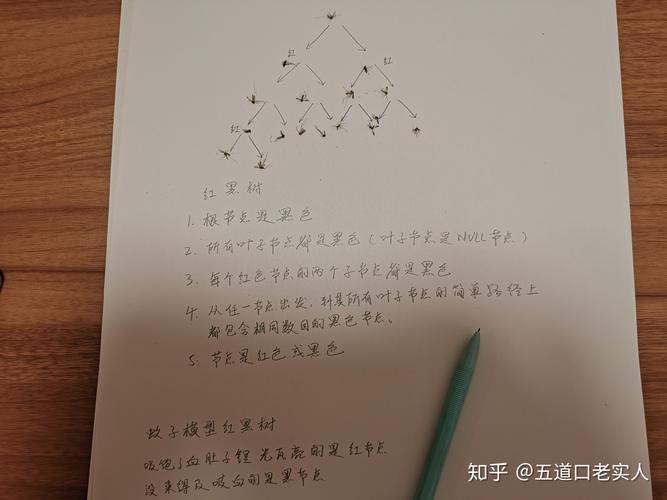 红
红
红
红黑树
1. 根节点是黑色
2. 所有叶子节点都是黑色（叶子节点是NULL节点）
3. 每个红色节点的两个子节点都是黑色
4. 从任一节点出发，到其所有叶子节点的简单路径上
都包含相同数目的黑色节点。
5. 节点是红色或黑色
蚊子模型红黑树
吸饱了血肚子锃光瓦亮的是红节点
没来得及吸血的是黑节点
知乎 @五道口老实人